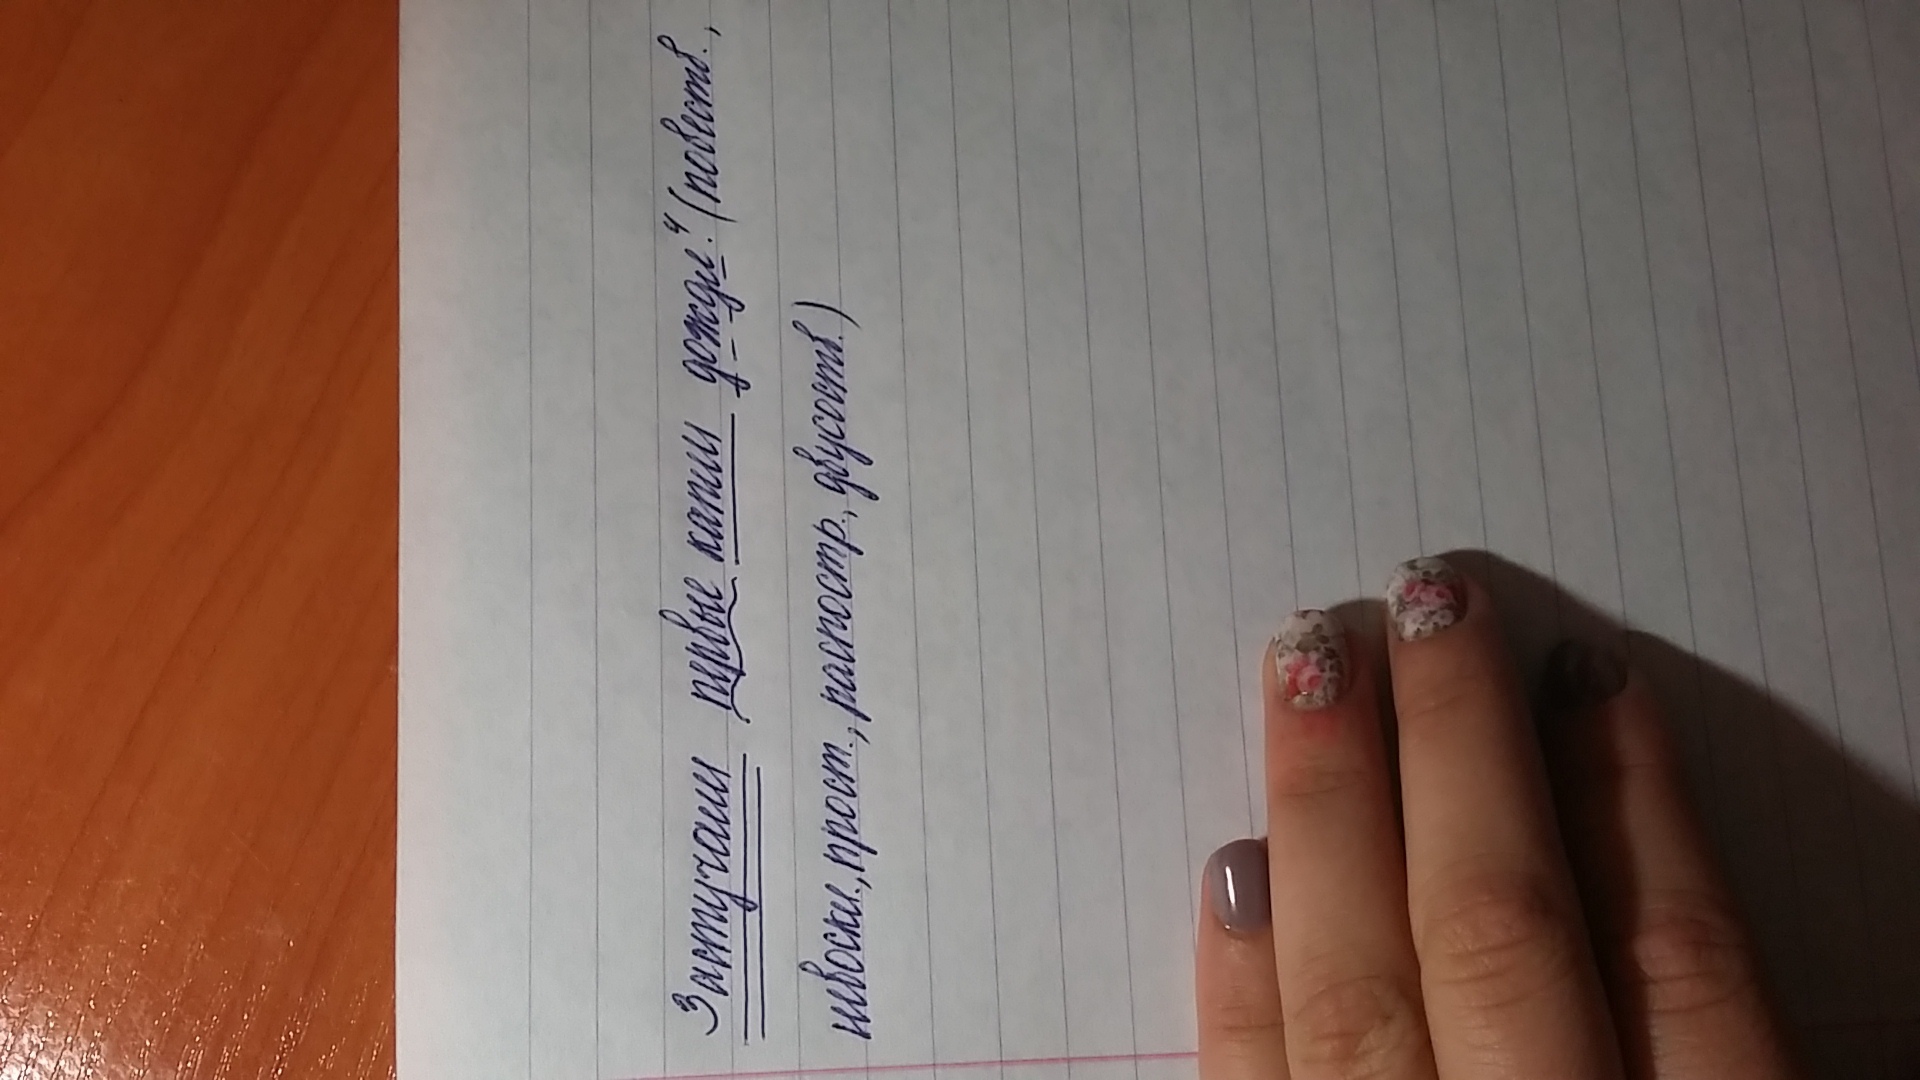 Застучали первые капли дождя.⁴ (повеств.,
невоскл., прост., распостр., двусоств.)